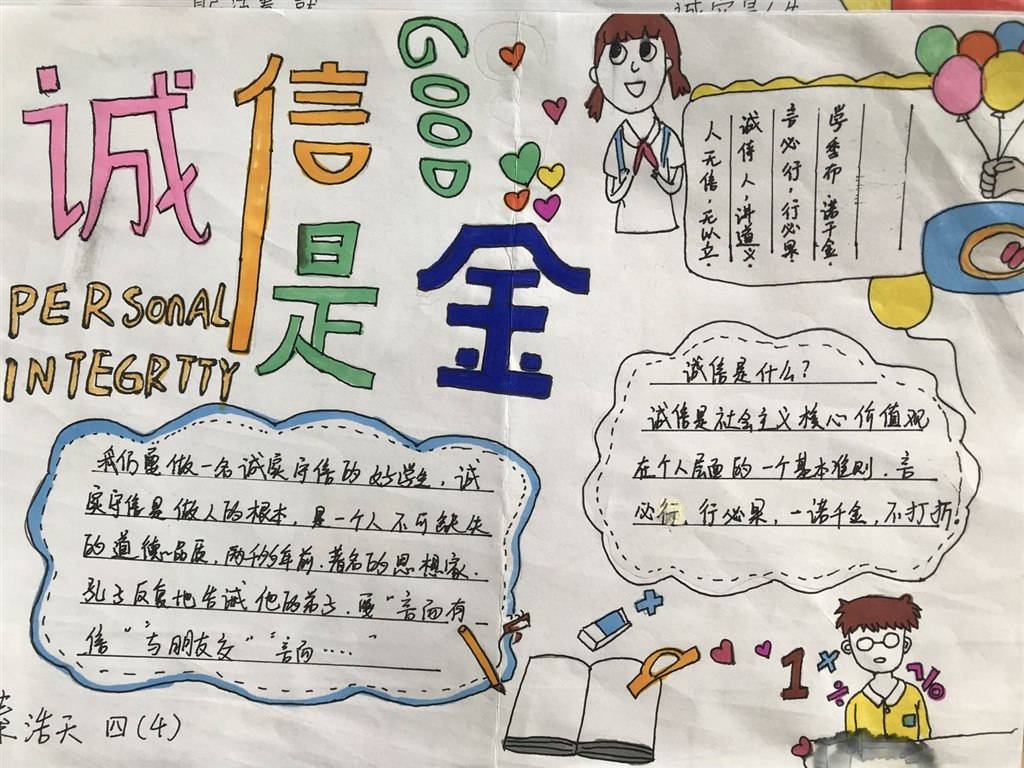 诚信是金
GOOD
PERSONAL
INTEGRTTY
学季布,诺千金。
言必行,行必果
诚待人,讲道义,
人无信,无以立。
诚信是什么?
诚信是社会主义核心价值观
在个人层面的一个基本准则,言
必行,行必果,一诺千金,不打折!
我们要做一名诚实守信的好学生,诚
实守信是做人的根本,是一个人不可缺失
的道德品质,两千多年前,著名的思想家、
孔子反复地告诫他的弟子,要"言而有
信"与朋友交""言而……"
浩天 四(4)
1